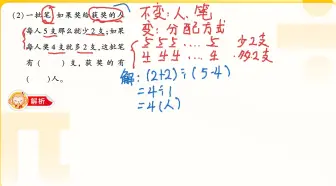 (2)一批笔,如果奖给获奖的人
每人5支那么就少2支;如果
每人奖4支就多2支,这批笔
有(    )支,获奖的有
(    )人。
解析
不变:人、笔
变:分配方式
5 5 5 …… 5 少2支
4 4 4 …… 4 多2支
解:(2+2)÷(5-4)
=4÷1
=4(人)